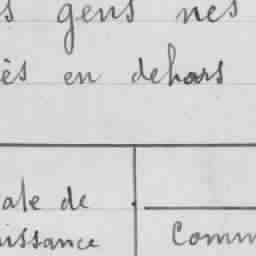 s gens nés
ès en dehors
ale de
issance
Comm